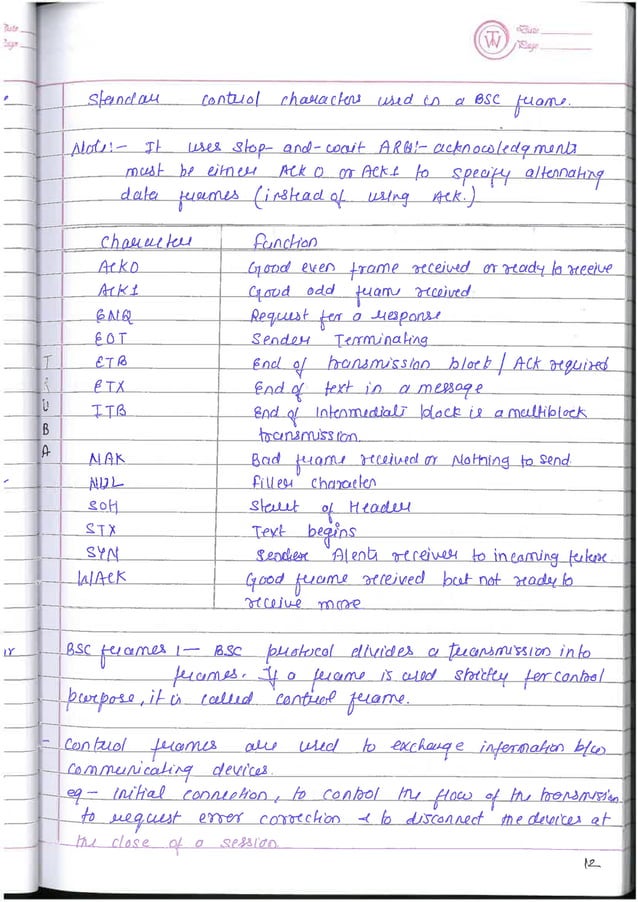 Date
Page
TW
Date
Page
Standard control characters used in a BSC frame.
Note:- It uses stop-and-wait ARQ:- acknowledgments
must be either ACK 0 or ACK1 to specify alternating
data frames (instead of using ACK.)
Character Function
ACK0 Good even frame received or ready to receive
ACK1 Good odd frame received
ENQ Request for a response
EOT Sender Terminating
ETB End of transmission block / ACK required
ETX End of text in a message
ITB End of Intermediate block is a multiblock
transmission.
NAK Bad frame received or Nothing to send.
NUL filler character
SOH Start of Header
STX Text begins
SYN Sender Alerts receiver to incoming
WACK Good frame received but not ready to
receive more
TRUBA
BSC frames :- BSC protocol divides a transmission into
frames. If a frame is used strictly for control
purpose, it is called control frame.
- Control frames are used to exchange information b/w
communicating devices.
eg - initial connection, to control the flow of the transmission
to request error correction & to disconnect the devices at
the close of a session.
12